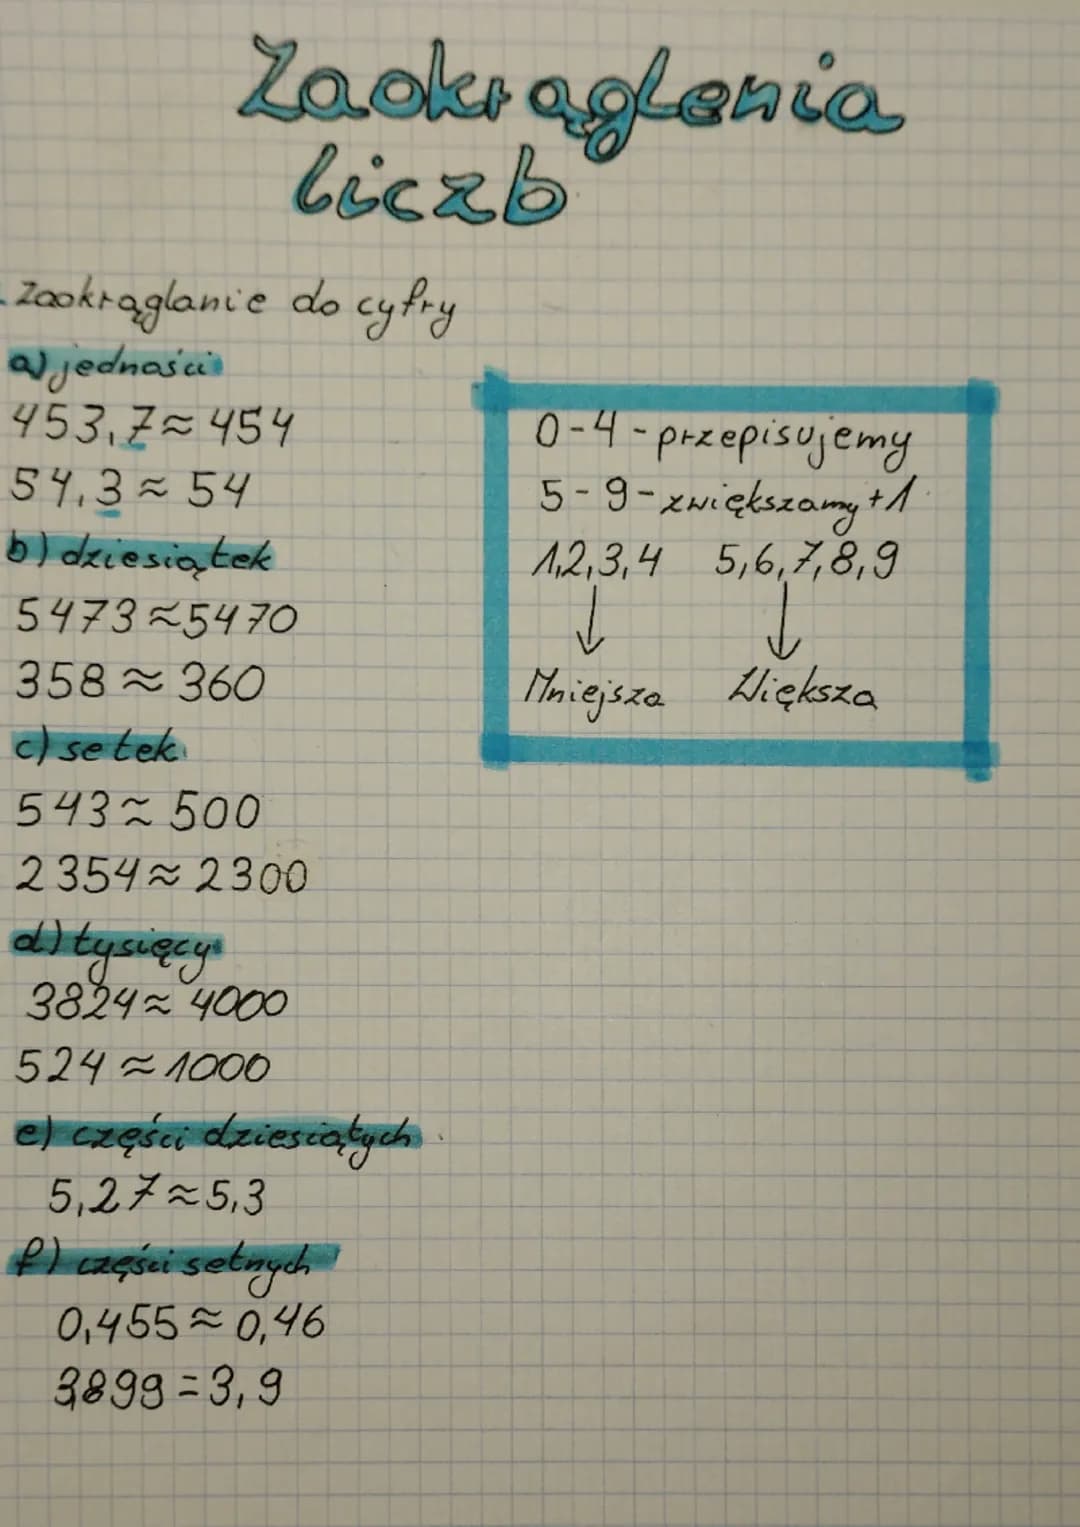 Zaokrąglenia
liczb
Zaokrąglanie do cyfry
a) jedności
453,7≈454
54,3≈54
b) dziesiątek
5473≈5470
358≈360
c) setek
543≈500
2354≈2300
d) tysięcy
3824≈4000
524≈1000
e) części dziesiątych
5,27≈5,3
f) części setnych
0,455≈0,46
3,899=3,9
0-4-przepisujemy
5-9-zwiększamy+1
1,2,3,4 5,6,7,8,9
↓ ↓
Mniejsza Większa